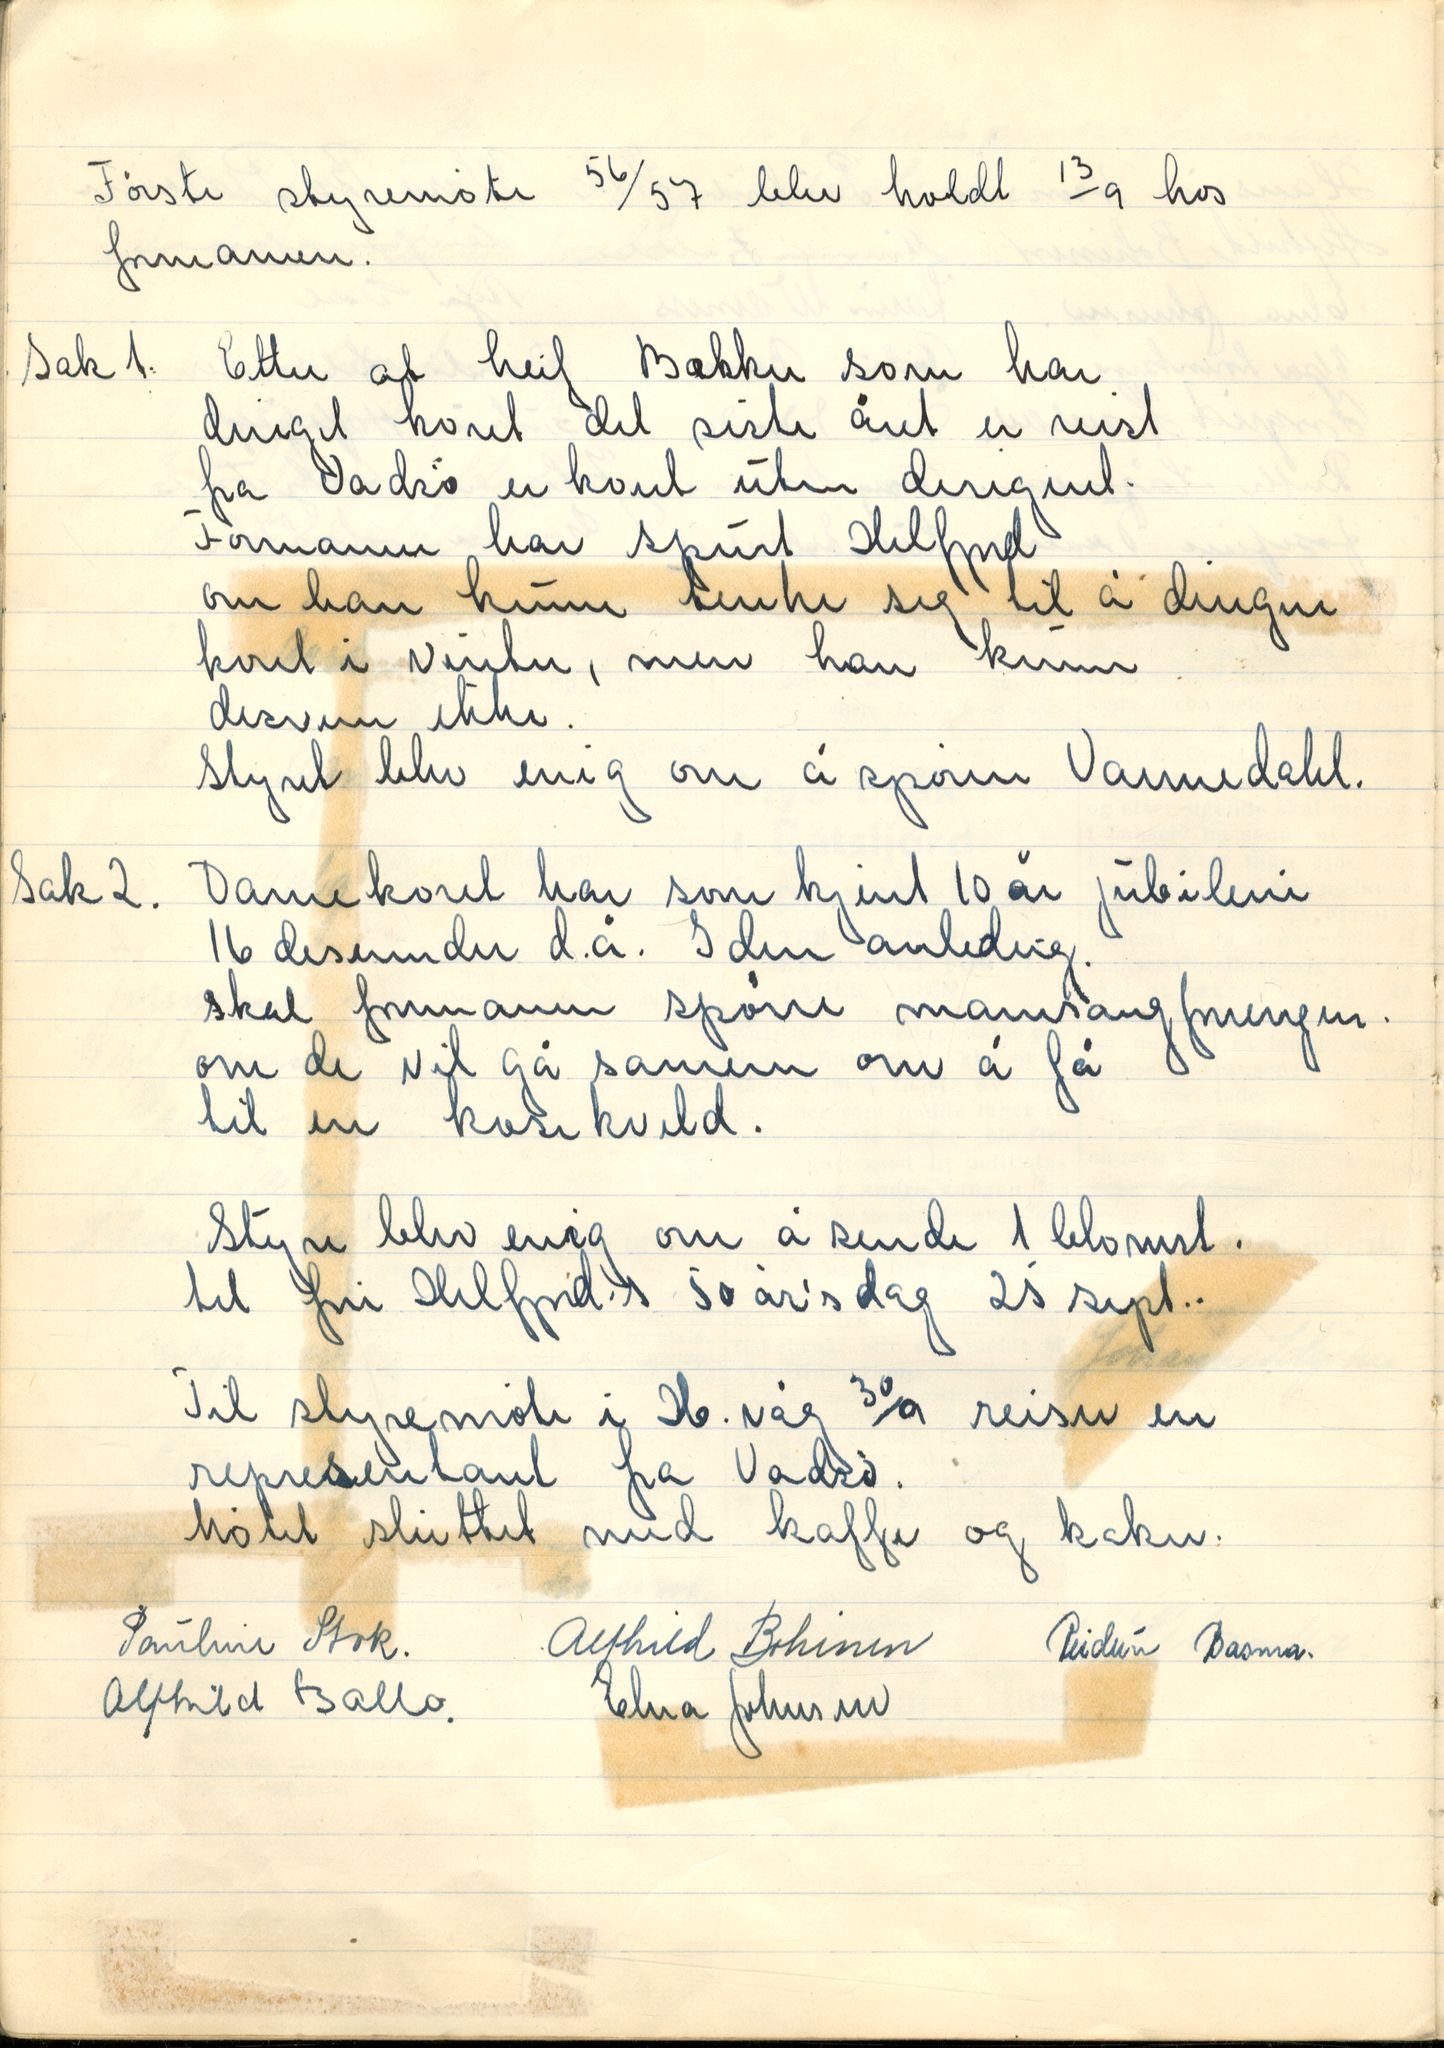 Første styremøte 56/57 blev holdt 13/9 hos
formannen.
Sak 1. Etter at Leif Bakken som har
dirigert koret det siste året er reist
fra Vadsø er koret uten dirigent.
Formannen har spurt Helfjord
om han kunne tenke seg til å dirigere
koret i vinter, men han kunne
desverre ikke.
Styret blev enig om å spørre Vannedahl.
Sak 2. Damekoret har som kjent 10 år jubileum
16 desember d.å. I den anledning
skal formannen spørre mannsangforeningen
om de vil gå sammen om å få
til en kosekveld.
Styre blev enig om å sende 1 blomst
til fru Helfjord's 50 årsdag 25 sept..
Til styremøte i H. våg 30/9 reiser en
representant fra Vadsø.
Møtet sluttet med kaffe og kaker.
Pauline Stok. Alfhild Bohinen Reidun Basma.
Alfhild Ballo. Elna Johnsen